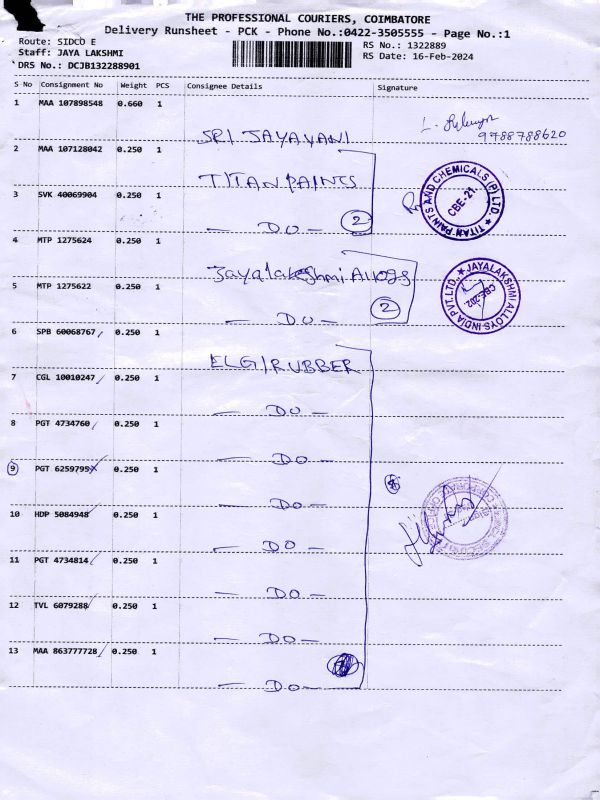 THE PROFESSIONAL COURIERS, COIMBATORE
Delivery Runsheet - PCK - Phone No.:0422-3505555 - Page No.:1
Route: SIDCO E
Staff: JAYA LAKSHMI
DRS No.: DCJB132288901
RS No.: 1322889
RS Date: 16-Feb-2024
S No Consignment No Weight PCS Consignee Details Signature
1 MAA 107898548 0.660 1
SRI JAYAVANI
9788788620
2 MAA 107128042 0.250 1
TITAN PAINTS
3 SVK 40069904 0.250 1
— DO — 2
TITAN PAINTS AND CHEMICALS (P) LTD. ★
CBE-21.
4 MTP 1275624 0.250 1
Jayalakshmi Alloys
5 MTP 1275622 0.250 1
— DO — 2
★ JAYALAKSHMI ALLOYS INDIA PVT.LTD.
6 SPB 60068767 0.250 1
ELGI RUBBER
7 CGL 10010247 0.250 1
— DO —
8 PGT 4734760 0.250 1
— DO —
9 PGT 6259795 0.250 1
— DO —
10 HDP 5084948 0.250 1
— DO —
11 PGT 4734814 0.250 1
— DO —
12 TVL 6079288 0.250 1
— DO —
13 MAA 863777728 0.250 1
— DO —